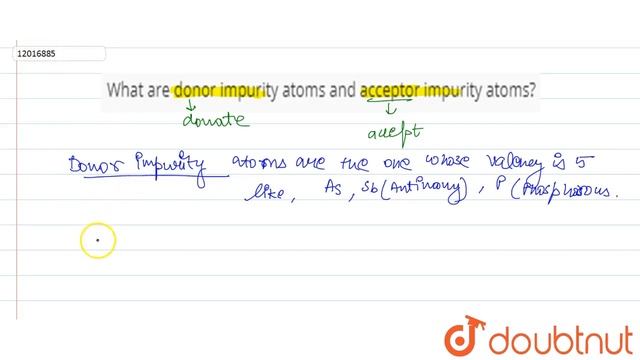 12016885
What are donor impurity atoms and acceptor impurity atoms?
donate
accept
Donor Impurity atoms are the one whose valency is 5
like, As, Sb (Antimony), P (Phosphorous.
doubtnut